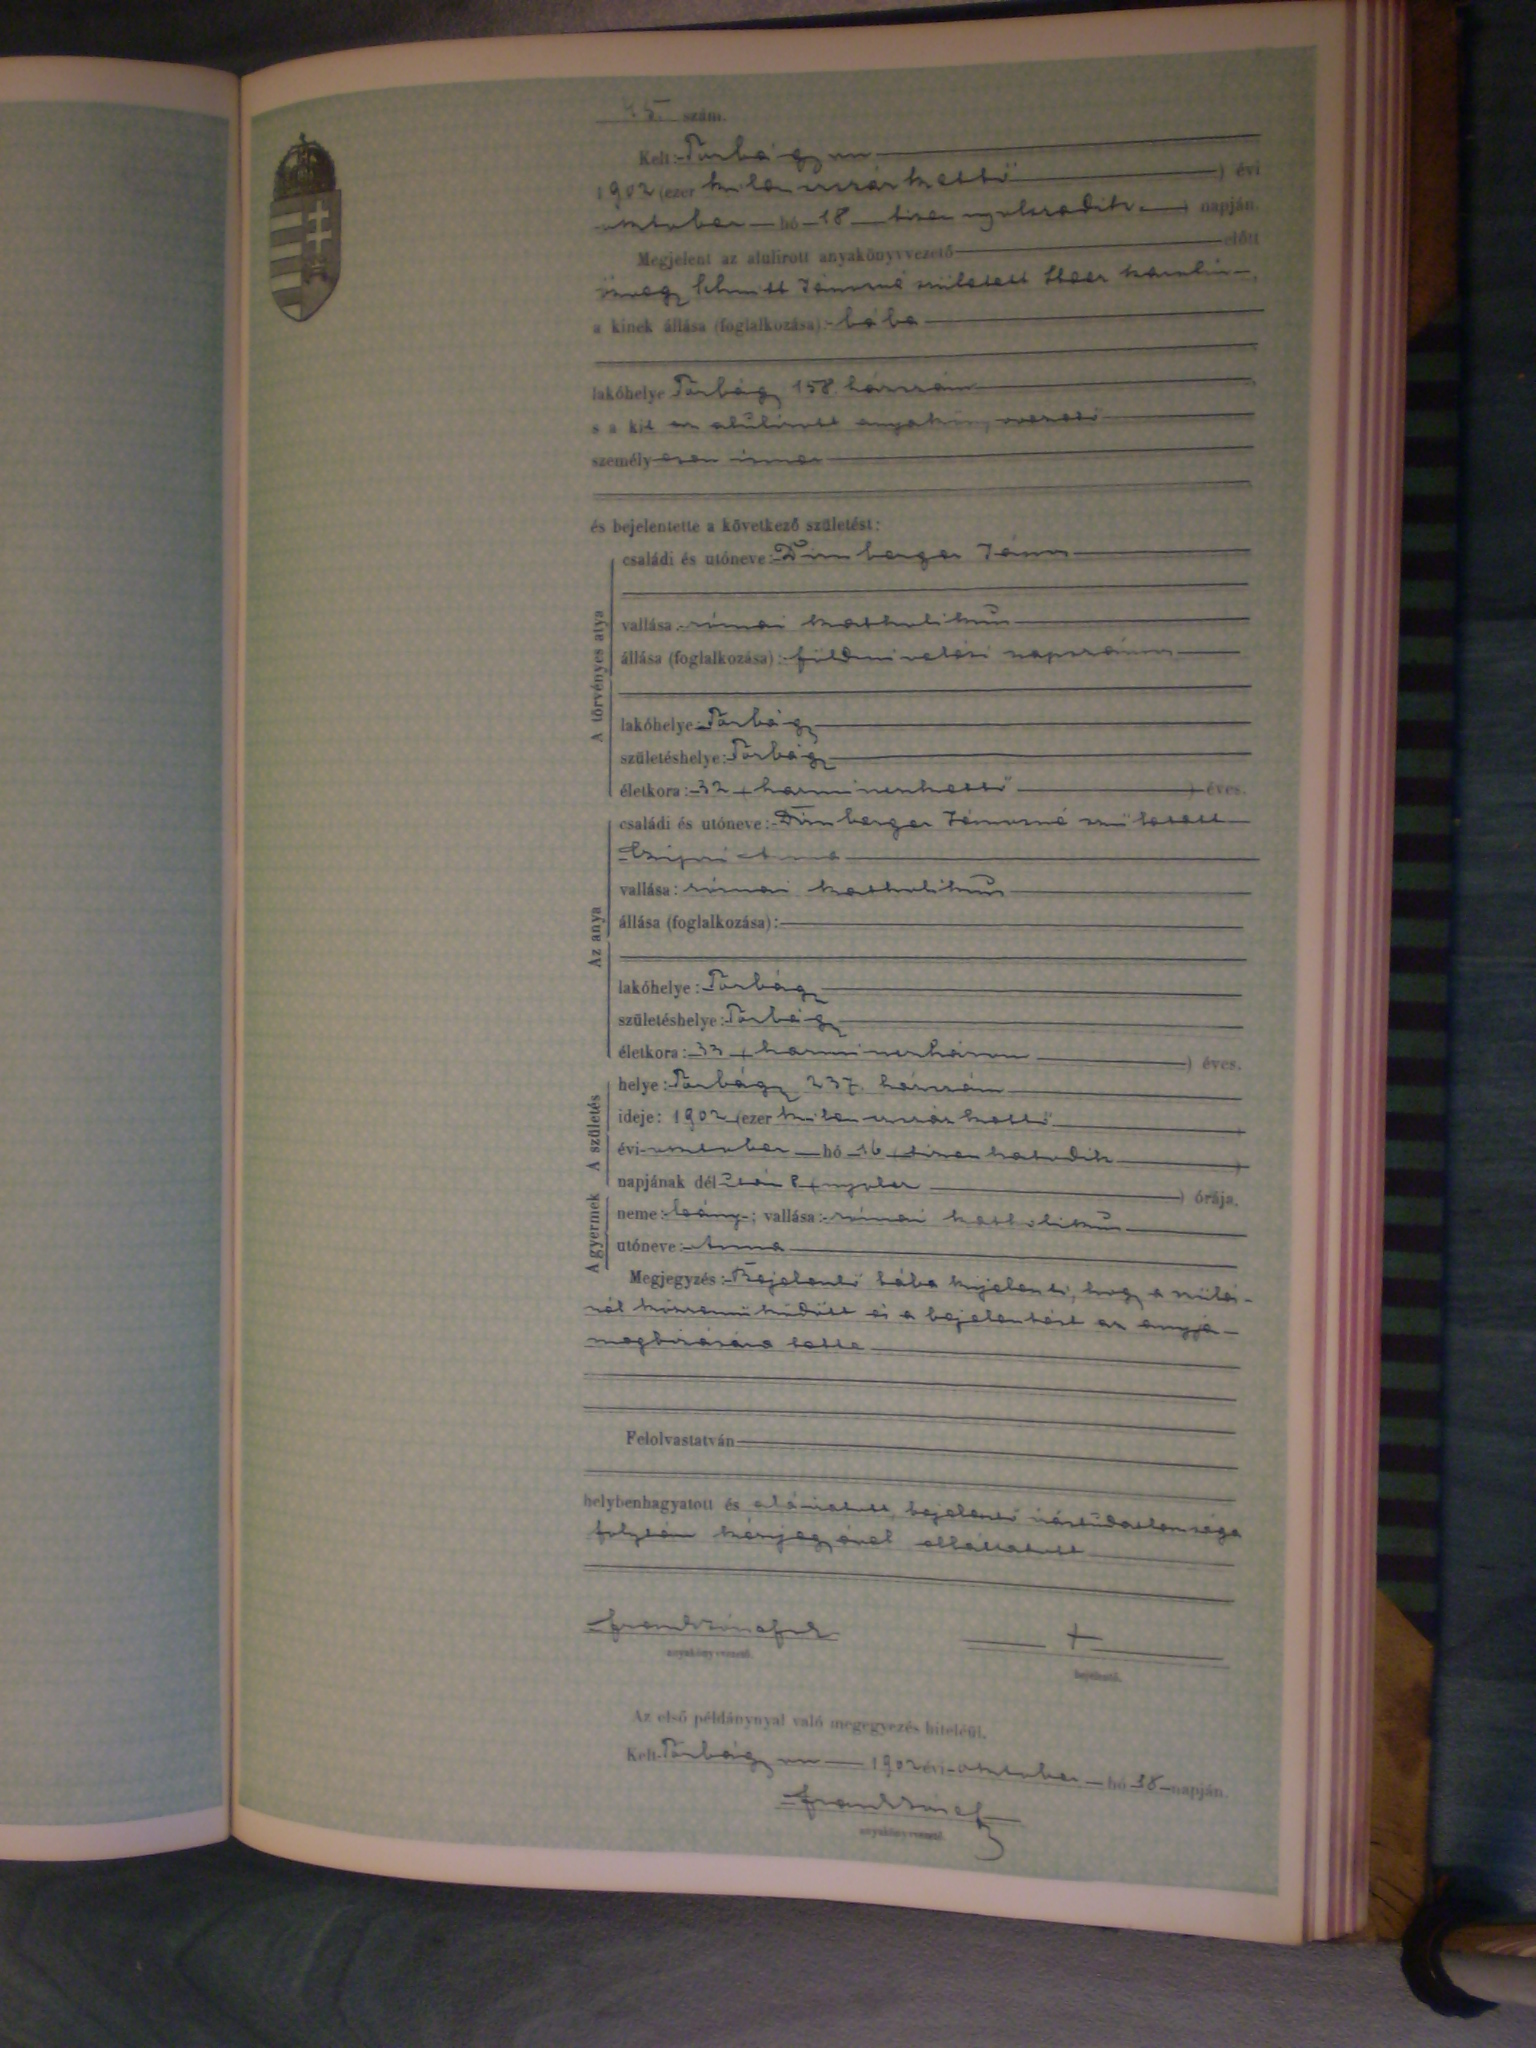 45. szám.
Kelt: Törbágyon
1902 (ezer kilenczszázkettő) évi
oktober hó 18 tizennyolczadik) napján.
Megjelent az alulirott anyakönyvvezető előtt
özvegy Schmitt Jánosné született
a kinek állása (foglalkozása): bába
lakóhelye Törbágy 158 házszám
s a kit az alulirott anyakönyvvezető
személyesen ismer
és bejelentette a következő születést:
A törvényes atya
családi és utóneve: János
vallása: római katholikus
állása (foglalkozása): földmivelési napszámos
lakóhelye: Törbágy
születéshelye: Törbágy
életkora: 32 (harminczkettő) éves.
Az anya
családi és utóneve: Jánosné született
Anna
vallása: római katholikus
állása (foglalkozása):
lakóhelye: Törbágy
születéshelye: Törbágy
életkora: 33 (harminczhárom) éves.
A születés
helye: Törbágy 237 házszám
ideje: 1902 (ezer kilenczszázkettő)
évi oktober hó 16 (tizenhatodik)
napjának délután 8 (nyolcz) órája.
A gyermek
neme: leány; vallása: római katholikus
utóneve: Anna
Megjegyzés: Bejelentő bába kijelenti, hogy a szülés-
nél közreműködött és a bejelentést az anya
megbizására tette
Felolvastatván
helybenhagyatott és aláiratott, bejelentő irástudatlansága
folytán kézjegyével elláttatott
anyakönyvvezető.
+
bejelentő.
Az első példánynyal való megegyezés hiteléül.
Kelt Törbágyon 1902 évi oktober hó 18 napján.
anyakönyvvezető.